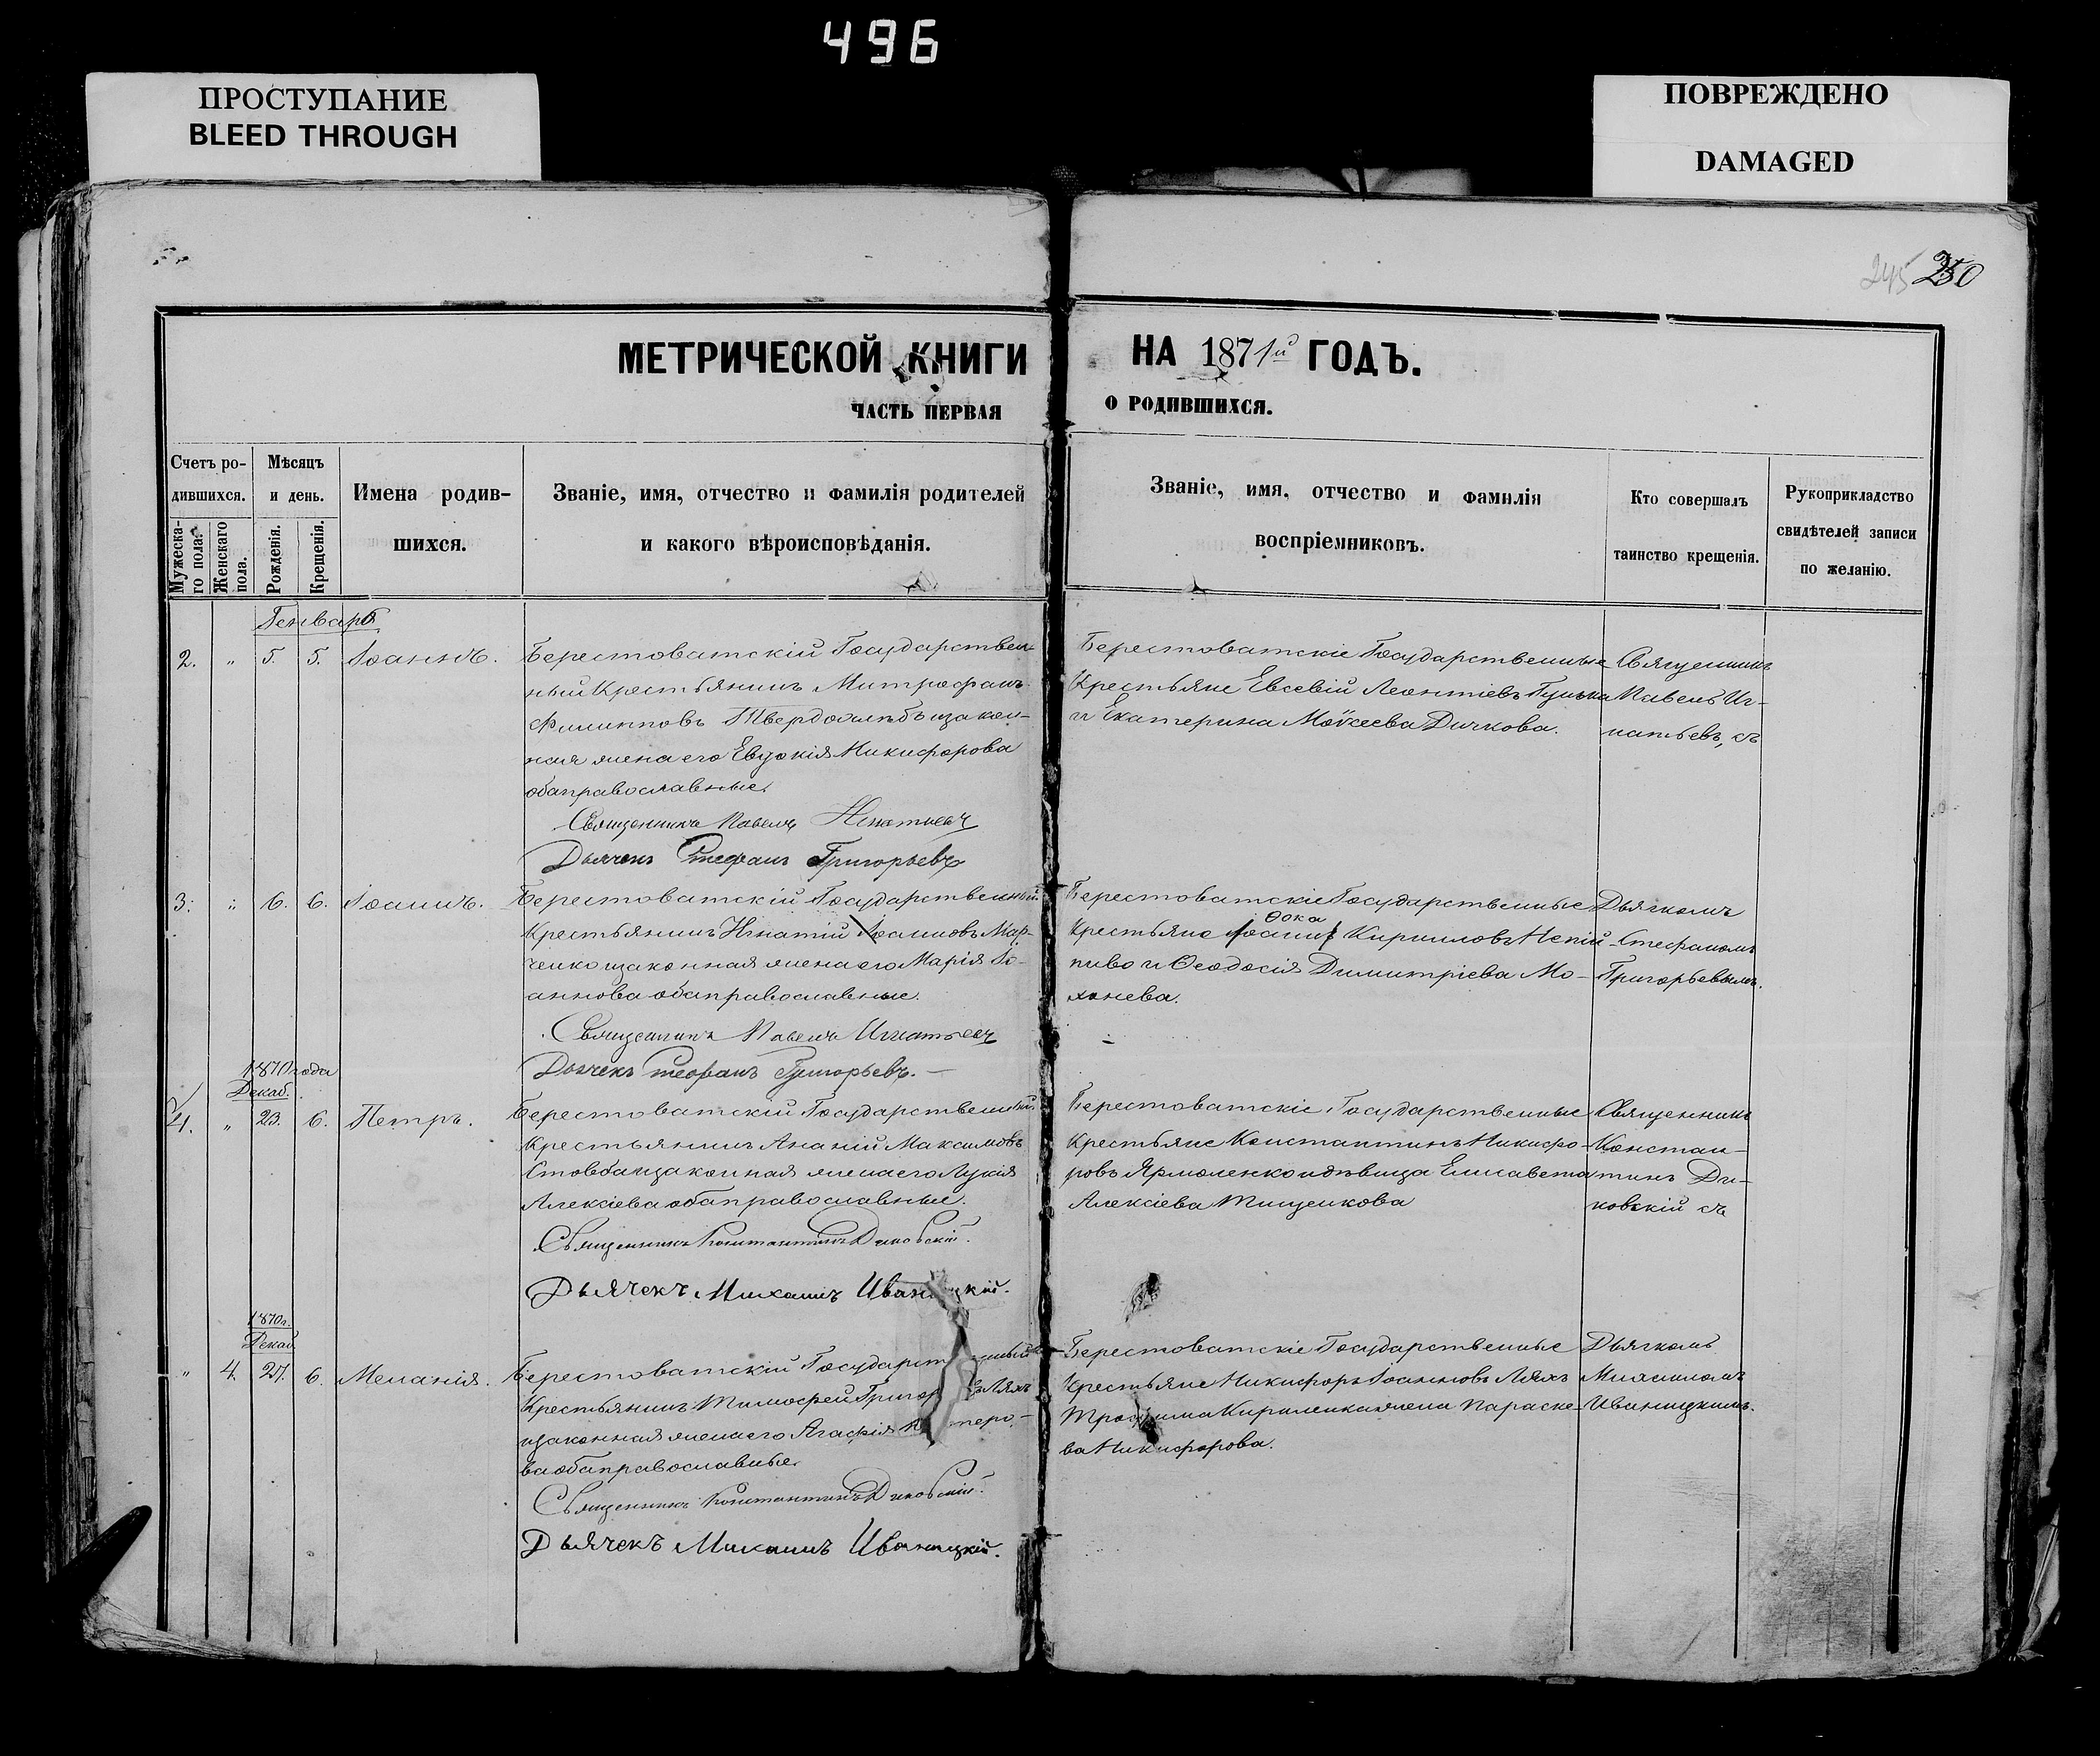 496
ПРОСТУПАНИЕ
BLEED THROUGH
ПОВРЕЖДЕНО
DAMAGED
245 250
МЕТРИЧЕСКОЙ КНИГИ НА 1871й ГОДЪ.
ЧАСТЬ ПЕРВАЯ О РОДИВШИХСЯ.
Счетъ ро-
дившихся.
Мужеска-
го пола.
Женскаго
пола.
Мѣсяцъ
и день.
Рожденія.
Крещенія.
Имена родив-
шихся.
Званіе, имя, отчество и фамилія родителей
и какого вѣроисповѣданія.
Званіе, имя, отчество и фамилія
воспріемниковъ.
Кто совершалъ
таинство крещенія.
Рукоприкладство
свидѣтелей записи
по желанію.
Генваря
2. " 5. 5. Іоаннъ.
Берестоватскій Государствен-
ный Крестьянинъ Митрофанъ
Филипповъ Твердохлѣбъ изакон-
ная жена его Евдокія Никифорова
оба православные.
Священникъ Павелъ Игнатьевъ
Дьячекъ Стефанъ Григорьевъ
Берестоватскіе Государственные
Крестьяне Евсевій Леонтіевъ
и Екатерина Моѵсеева Дичкова.
Священникъ
Павелъ Иг-
натьевъ, съ
3. " 6. 6. Іоаннъ.
Берестоватскій Государственный
Крестьянинъ Игнатій Іоанновъ Мар-
ченко изаконная жена его Марія Іо-
аннова оба православные.
Священникъ Павелъ Игнатьевъ
Дьячекъ Стефанъ Григорьевъ.
Берестоватскіе Государственные
Ѳока
Крестьяне Іоаннъ Кирилловъ Непій-
пиво и Ѳеодосія Димитріева Мо-
хонева.
Дьячкомъ
Стефаномъ
Григорьевымъ.
1870 года
Декаб.
4. " 23. 6. Петръ.
Берестоватскій Государственный
Крестьянинъ Ананій Максимовъ
Стовба изаконная жена его Лукія
Алексіева оба православные.
Священникъ Константинъ Диковскій.
Дьячекъ Михаилъ Иваницкій.
Берестоватскіе Государственные
Крестьяне Константинъ Никифо-
ровъ Ярмоленко идѣвица Елисавета
Алексіева Тищенкова
Священникъ
Констан-
тинъ Ди-
ковскій съ
1870г.
Декаб.
" 4. 27. 6. Меланія.
Берестоватскій Государст ный
Крестьянинъ Тимофей Григор въ Ляхъ
изаконная жена его Агафія
ва оба православные.
Священникъ Константинъ Диковскій.
Дьячекъ Михаилъ Иваницкій.
Берестоватскіе Государственные
Крестьяне Никифоръ Іоанновъ Ляхъ
Трофима Кириленка жена Параске-
ва Никифорова.
Дьячкомъ
Михаиломъ
Иваницкимъ.